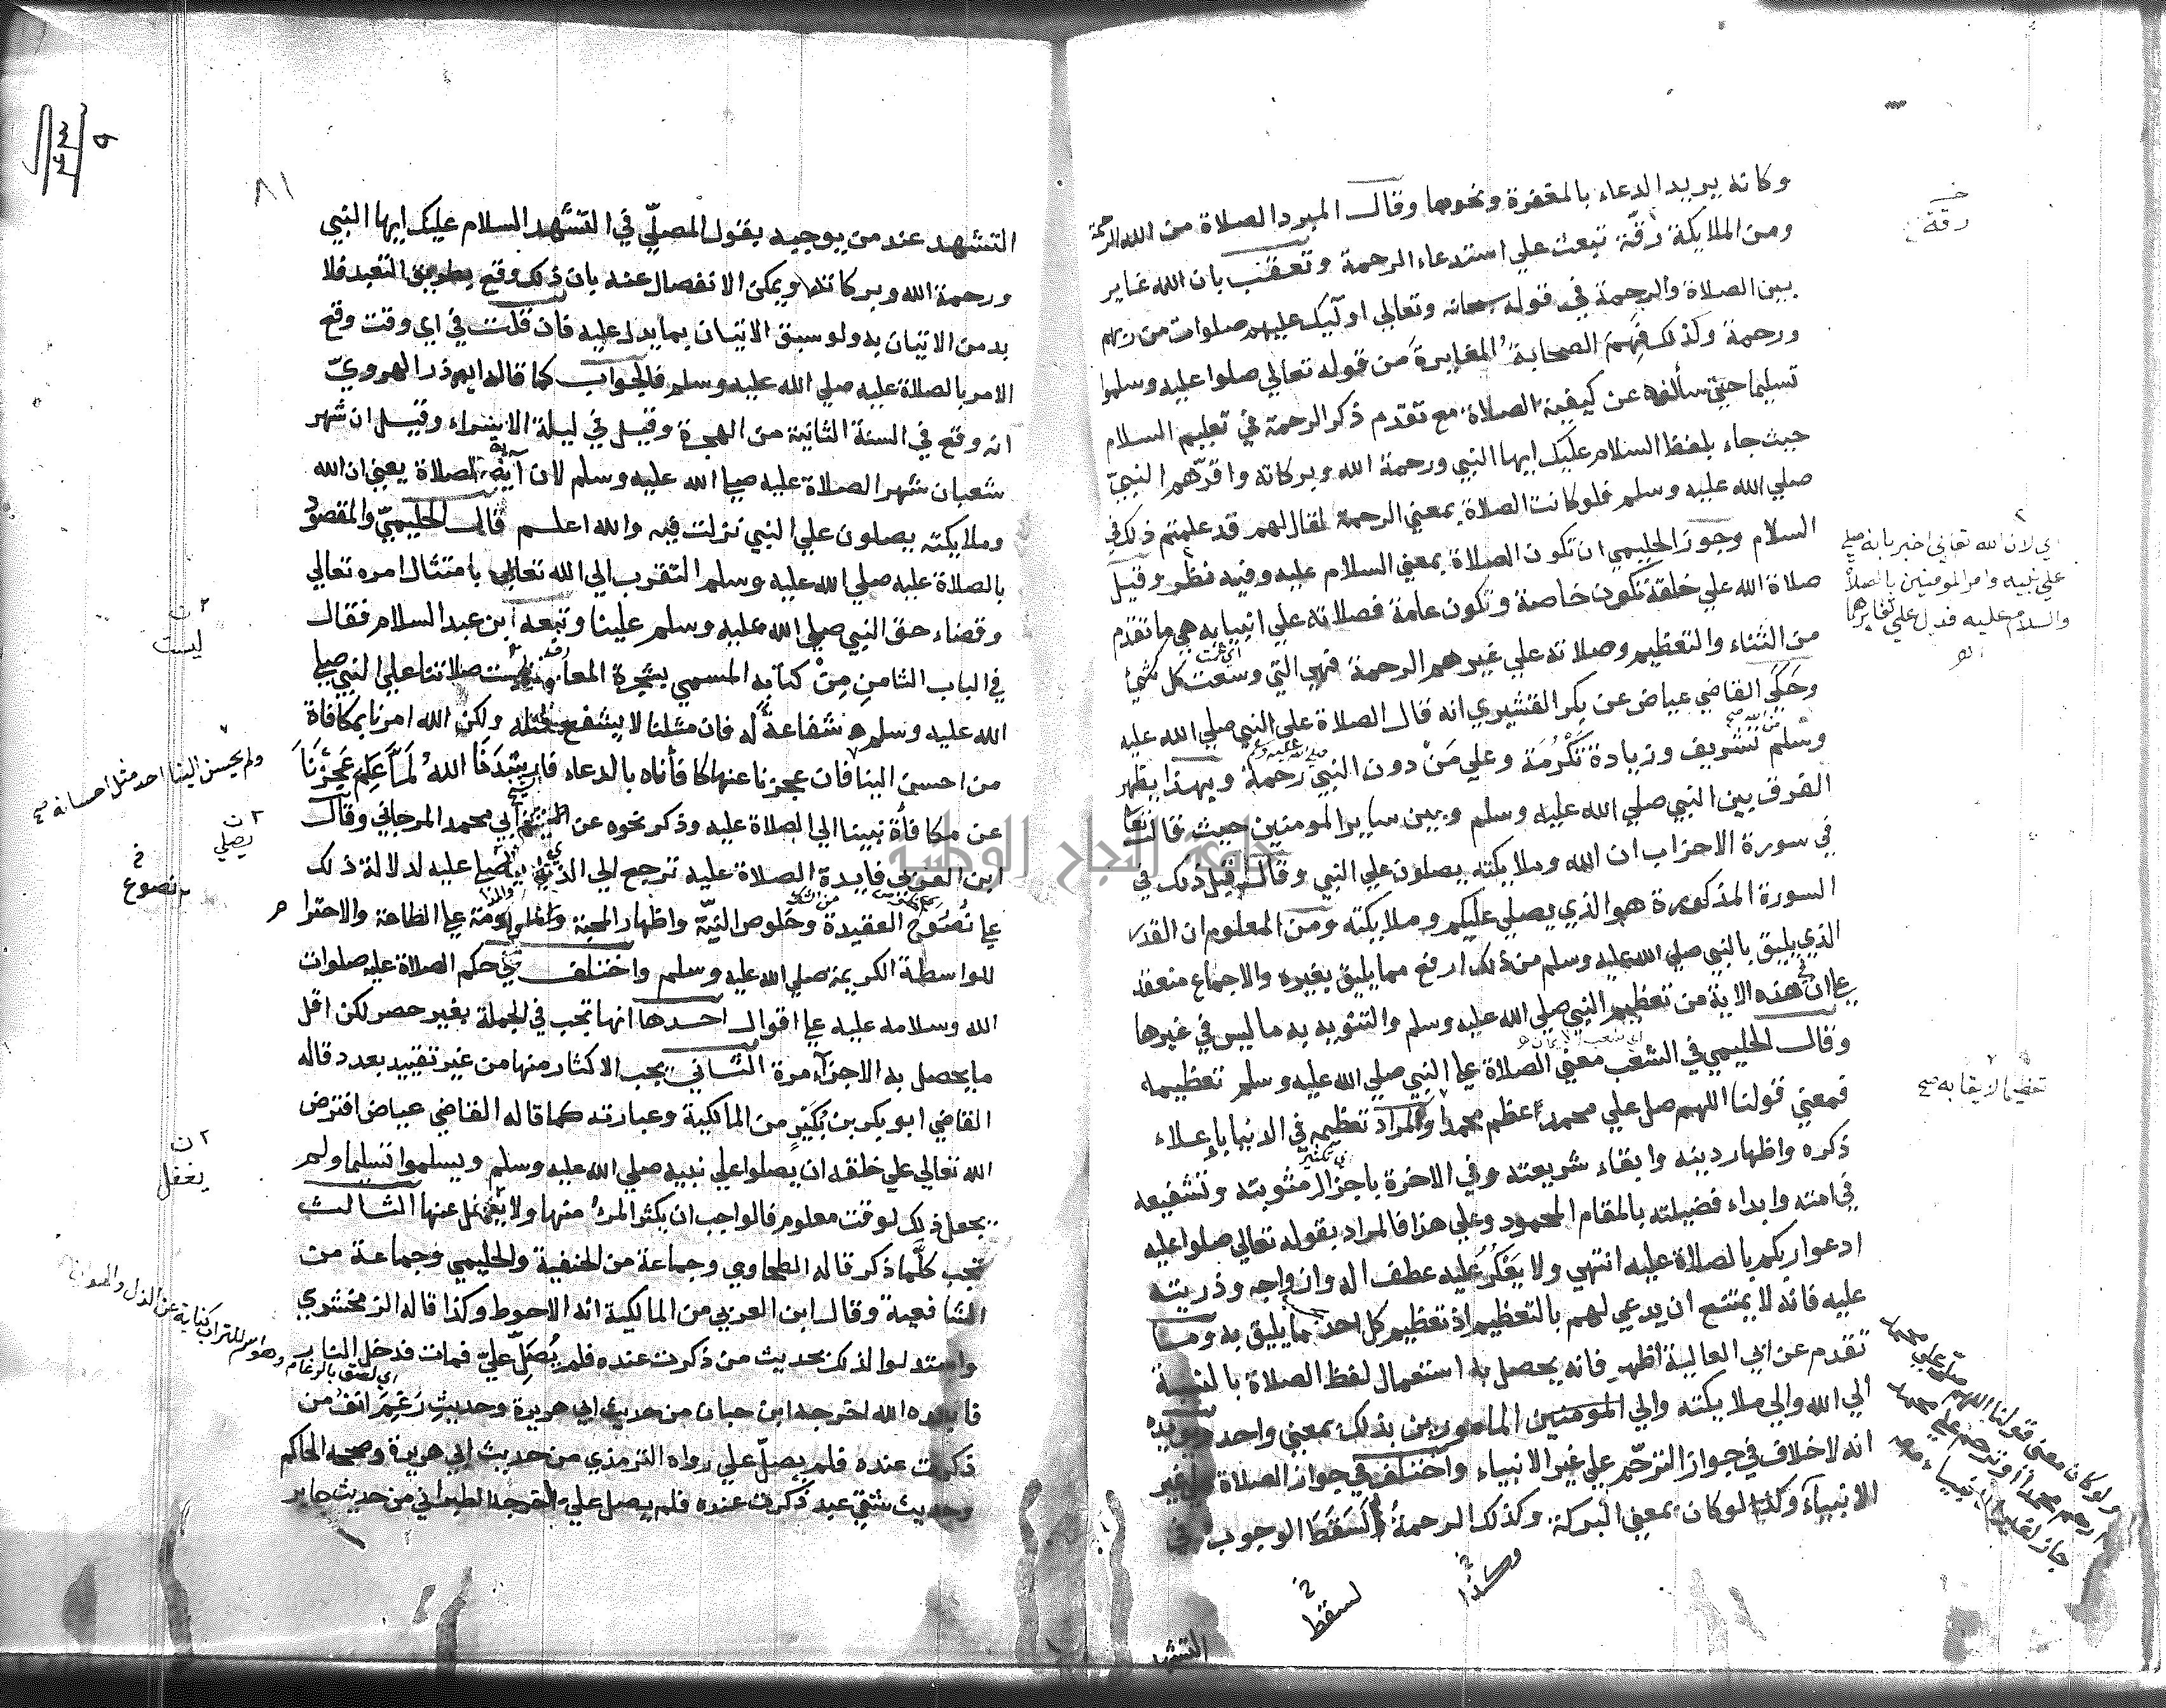 وكانه يريد الدعاء بالمغفرة ونحوها وقال المبرد الصلاة من الله الرحمة
ومن الملايكة رقة تبعث علي استدعاء الرحمة وتعقب بان الله غاير
بين الصلاة والرحمة في قوله سبحانه وتعالي اوليك عليهم صلوات من ربهم
ورحمة وكذلك فهم الصحابة المغايرة من قوله تعالي صلوا عليه وسلموا
تسليما حتي سألوه عن كيفية الصلاة مع تقدم ذكر الرحمة في تعليم السلام
حيث جاء بلفظ السلام عليك ايها النبي ورحمة الله وبركاته واقرهم النبي
صلي الله عليه وسلم فلو كانت الصلاة بمعني الرحمة لقال لهم قد علمتم ذلك في
السلام وجوز الحليمي ان تكون الصلاة بمعني السلام عليه وفيه نظر وقيل
صلاة الله علي خلقه تكون خاصة وتكون عامة فصلاته علي انبيايه هي ما تقدم
من الثناء والتعظيم وصلاته علي غيرهم الرحمة فهي التي وسعت كل شئ
وحكي القاضي عياض عن بكر القشيري انه قال الصلاة علي النبي صلي الله عليه
وسلم تشريف وزيادة تكرمة وعلي من دون النبي رحمة وبهذا يظهر
الفرق بين النبي صلي الله عليه وسلم وبين ساير المومنين حيث قال تعا
في سورة الاحزاب ان الله وملايكته يصلون علي النبي وقال قبل ذلك في
السورة المذكورة هو الذي يصلي عليكم وملايكته ومن المعلوم ان القدر
الذي يليق بالنبي صلي الله عليه وسلم من ذلك ارفع مما يليق بغيره والاجماع منعقد
علي ان في هذه الاية من تعظيم النبي صلي الله عليه وسلم والتنويه به ما ليس في غيرها
وقال الحليمي في الشعب معني الصلاة علي النبي صلي الله عليه وسلم تعظيمه
فمعني قولنا اللهم صل علي محمد اعظم محمدا والمراد تعظيمه في الدنيا باعلاء
ذكره واظهار دينه وابقاء شريعته وفي الاخرة باجزال مثوبته وتشفيعه
في امته وابداء فضيلته بالمقام المحمود وعلي هذا فالمراد بقوله تعالي صلوا عليه
ادعوا ربكم بالصلاة عليه انتهي ولا يعكر عليه عطف اله وازواجه وذريته
عليه فانه لا يمتنع ان يدعي لهم بالتعظيم اذ تعظيم كل احد بما يليق به وما
تقدم عن ابي العالية اظهر فانه يحصل به استعمال لفظ الصلاة بالنسبة
الي الله والي ملايكته والي المومنين المامورين بذلك بمعني واحد ويويده
انه لا خلاف في جواز الترحم علي غير الانبياء واختلف في جواز الصلاة علي غير
الانبياء وكذا لو كان بمعني البركة وكذلك الرحمة لسقط الوجوب في
وكذا
لسقط
التشهد
رقة
اي لان الله تعالي اخبر بانه صلي
علي نبيه وامر المومنين بالصلاة
والسلام عليه فدل علي تغايرهما
ولو كان معني قولنا اللهم
صل علي محمد
٨١
التشهد عند من يوجبه بقول المصلي في التشهد السلام عليك ايها النبي
ورحمة الله وبركاته ويمكن الانفصال عنه بان ذلك وقع بطريق التعبد فلا
بد من الاتيان به ولو سبق الاتيان بما يدل عليه فان قلت في اي وقت وقع
الامر بالصلاة عليه صلي الله عليه وسلم فالجواب كما قاله ابو ذر الهروي
انه وقع في السنة الثانية من الهجرة وقيل في ليلة الاسراء وقيل ان شهر
شعبان شهر الصلاة عليه صلي الله عليه وسلم لان آية الصلاة يعني ان الله
وملايكته يصلون علي النبي نزلت فيه والله اعلم قال الحليمي والمقصود
بالصلاة عليه صلي الله عليه وسلم التقرب الي الله تعالي بامتثال امره تعالي
وقضاء حق النبي صلي الله عليه وسلم علينا وتبعه ابن عبد السلام فقال
في الباب الثامن من كتابه المسمي بشجرة المعارف ليست صلاتنا علي النبي صلي
الله عليه وسلم شفاعة له فان مثلنا لا يشفع لمثله ولكن الله امرنا بمكافاة
من احسن الينا فان عجزنا عنها كافأناه بالدعاء فارشدنا الله لما علم عجزنا
عن مكافأة نبينا الي الصلاة عليه وذكر نحوه عن الشيخ ابي محمد المرجاني وقال
ابن العربي فايدة الصلاة عليه ترجع الي الذي يصلي عليه لدلالة ذلك
علي نصوع العقيدة وخلوص النية واظهار المحبة والمداومة علي الطاعة والاحترام
للواسطة الكريمة صلي الله عليه وسلم واختلف في حكم الصلاة عليه صلوات
الله وسلامه عليه علي اقوال احدها انها تجب في الجملة بغير حصر لكن اقل
ما يحصل به الاجزآء مرة الثاني يجب الاكثار منها من غير تقييد بعدد قاله
القاضي ابو بكر بن بكير من المالكية وعبارته كما قاله القاضي عياض افترض
الله تعالي علي خلقه ان يصلوا علي نبيه صلي الله عليه وسلم ويسلموا تسليما ولم
يجعل ذلك لوقت معلوم فالواجب ان يكثر المرء منها ولا يغفل عنها الثالث
تجب كلما ذكر قاله الطحاوي وجماعة من الحنفية والحليمي وجماعة من
الشافعية وقال ابن العربي من المالكية انه الاحوط وكذا قاله الزمخشري
واستدلوا لذلك بحديث من ذكرت عنده فلم يصل علي فمات فدخل النار
فابعده الله اخرجه ابن حبان من حديث ابي هريرة وحديث رغم انف من
ذكرت عنده فلم يصل علي رواه الترمذي من حديث ابي هريرة وصححه الحاكم
وحديث شقي عبد ذكرت عنده فلم يصل علي اخرجه الطبراني من حديث جابر
ليست
ولم يحسن الينا احد مثل احسانه صح
يصلي
نصوع
يغفل
اي لصق بالرغام وهو اسم للتراب كناية عن الذل والهوان
جامعة النجاح الوطنية